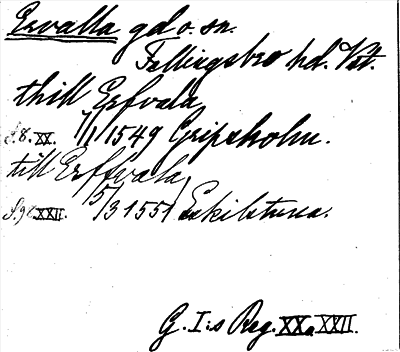 Ervalla gd o. sn.
Fellingsbro hd. Vstm.
thill Erfvala
s. 8. XX. 7/1 1549 Gripsholm.
till Erffvala
XXII. 5/3 1551 Eskilstuna.
G. I:s Reg. XX o XXII.